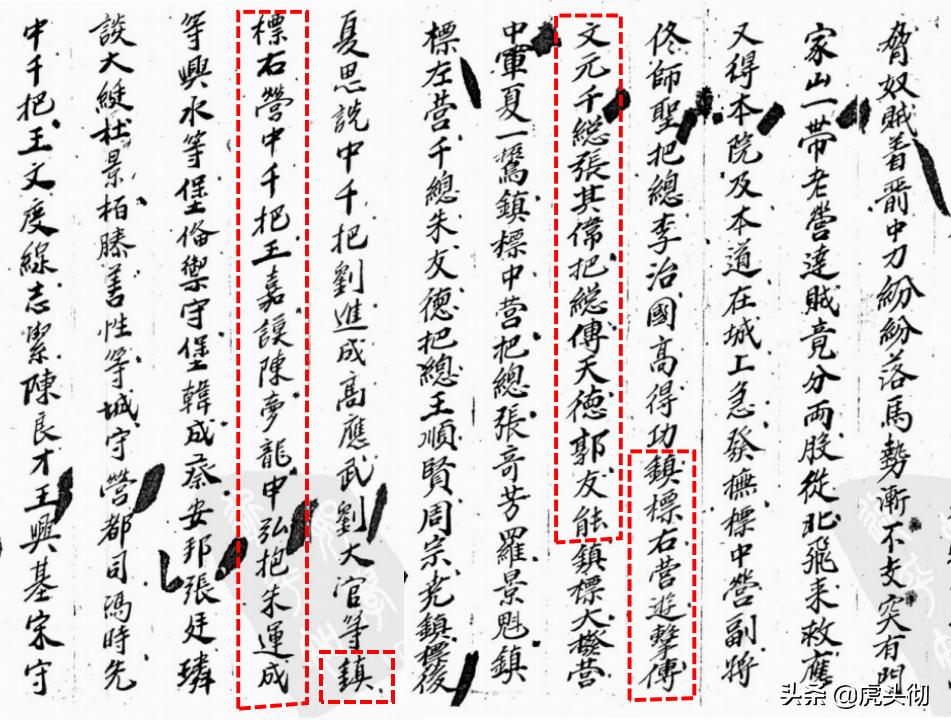 脅奴賊着箭中刀紛紛落馬勢漸不支突有門
家山一帶老營達賊竟分兩股從北飛来救應
又得本院及本道在城上急發撫標中營副將
佟師聖把總李治國高得功鎮標右营遊擊傳
文元千総張其偉把総傅天德郭友能鎮標大營
中軍夏一鶚鎮標中营把總張奇芳羅景魁鎮
標左营千總朱友德把總王順賢周宗堯鎮標後
夏思説中千把劉進成高應武劉大官等鎮
標右營中千把王嘉謨陳夢龍申弘抱朱運成
等興水等堡俻禦守堡韓成蔡安邦張廷璘
談大綎杜景栢滕善性等城守營都司馮時先
中千把王文度線志潔陳良才王興基宋守
头条 @虎头彻